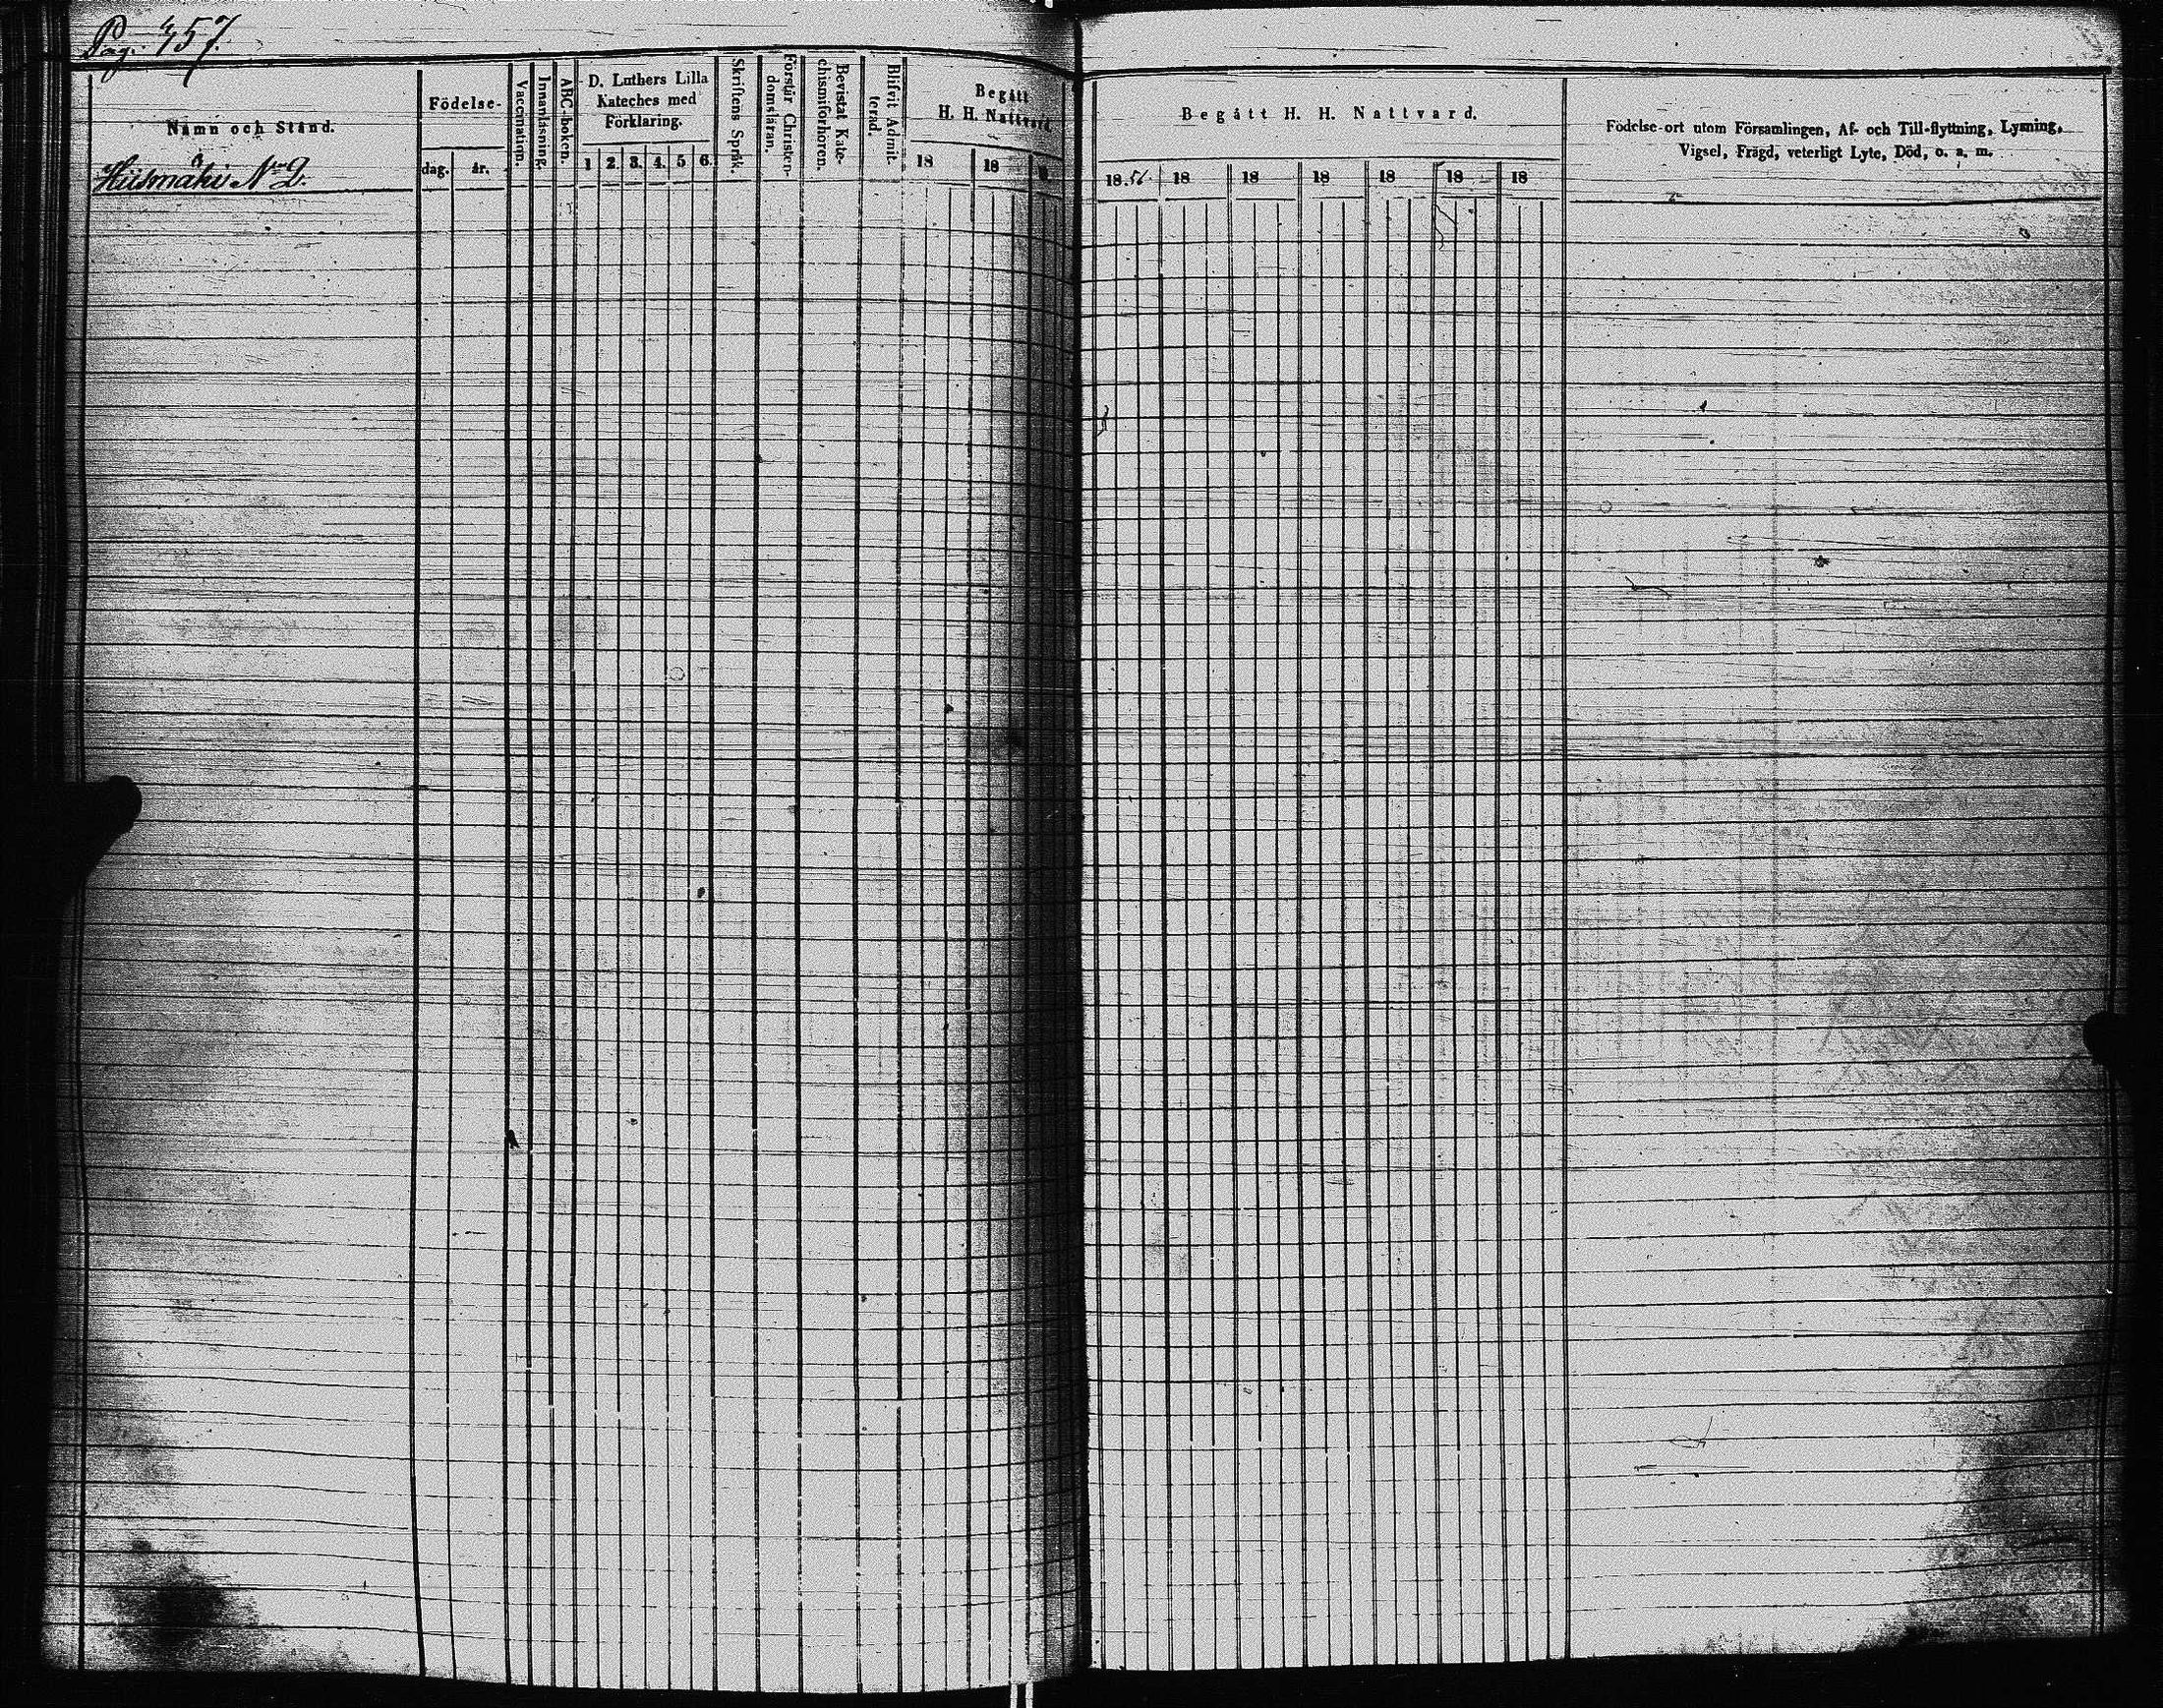 Pag. 457.
Namn och Stånd.
Hiismäki No 2.
Födelse-
dag. år.
Vaccination.
Innanläsning.
ABC-boken.
D. Luthers Lilla
Kateches med
Förklaring.
1 2. 3. 4. 5 6.
Skriftens Språk.
Förstår Christen-
domsläran.
Bevistat Kate-
chismiförhören.
Blifvit Admit-
terad.
Begått
H. H. Nattvard.
18 18
Begått H. H. Nattvard.
18.56. 18 18 18 18 18 18
Födelse-ort utom Församlingen, Af- och Till-flyttning, Lysning,
Vigsel, Frägd, veterligt Lyte, Död, o. s. m.